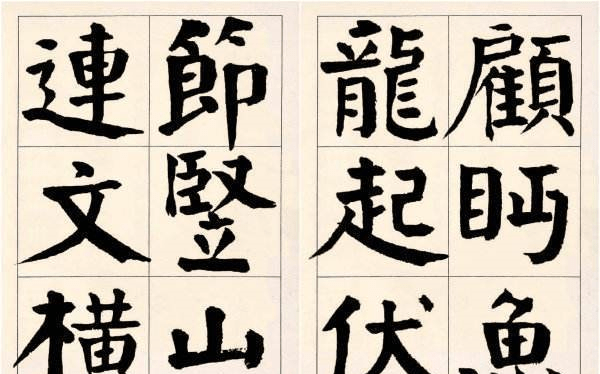 顧眄魚
龍起伏
節竪山
連文横